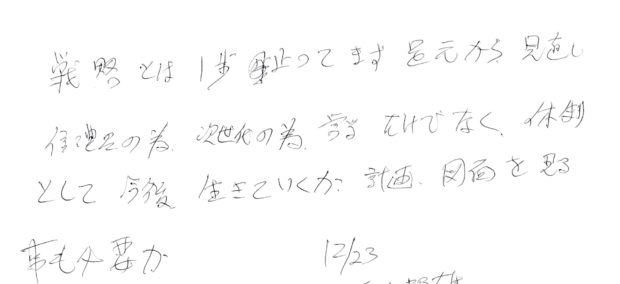 戦略とは1歩止ってまず足元から見直し
の為、次世代の為、学ぶだけでなく、体制
として今後生きていくか、計画、図面を見る
事も必要か
12/23